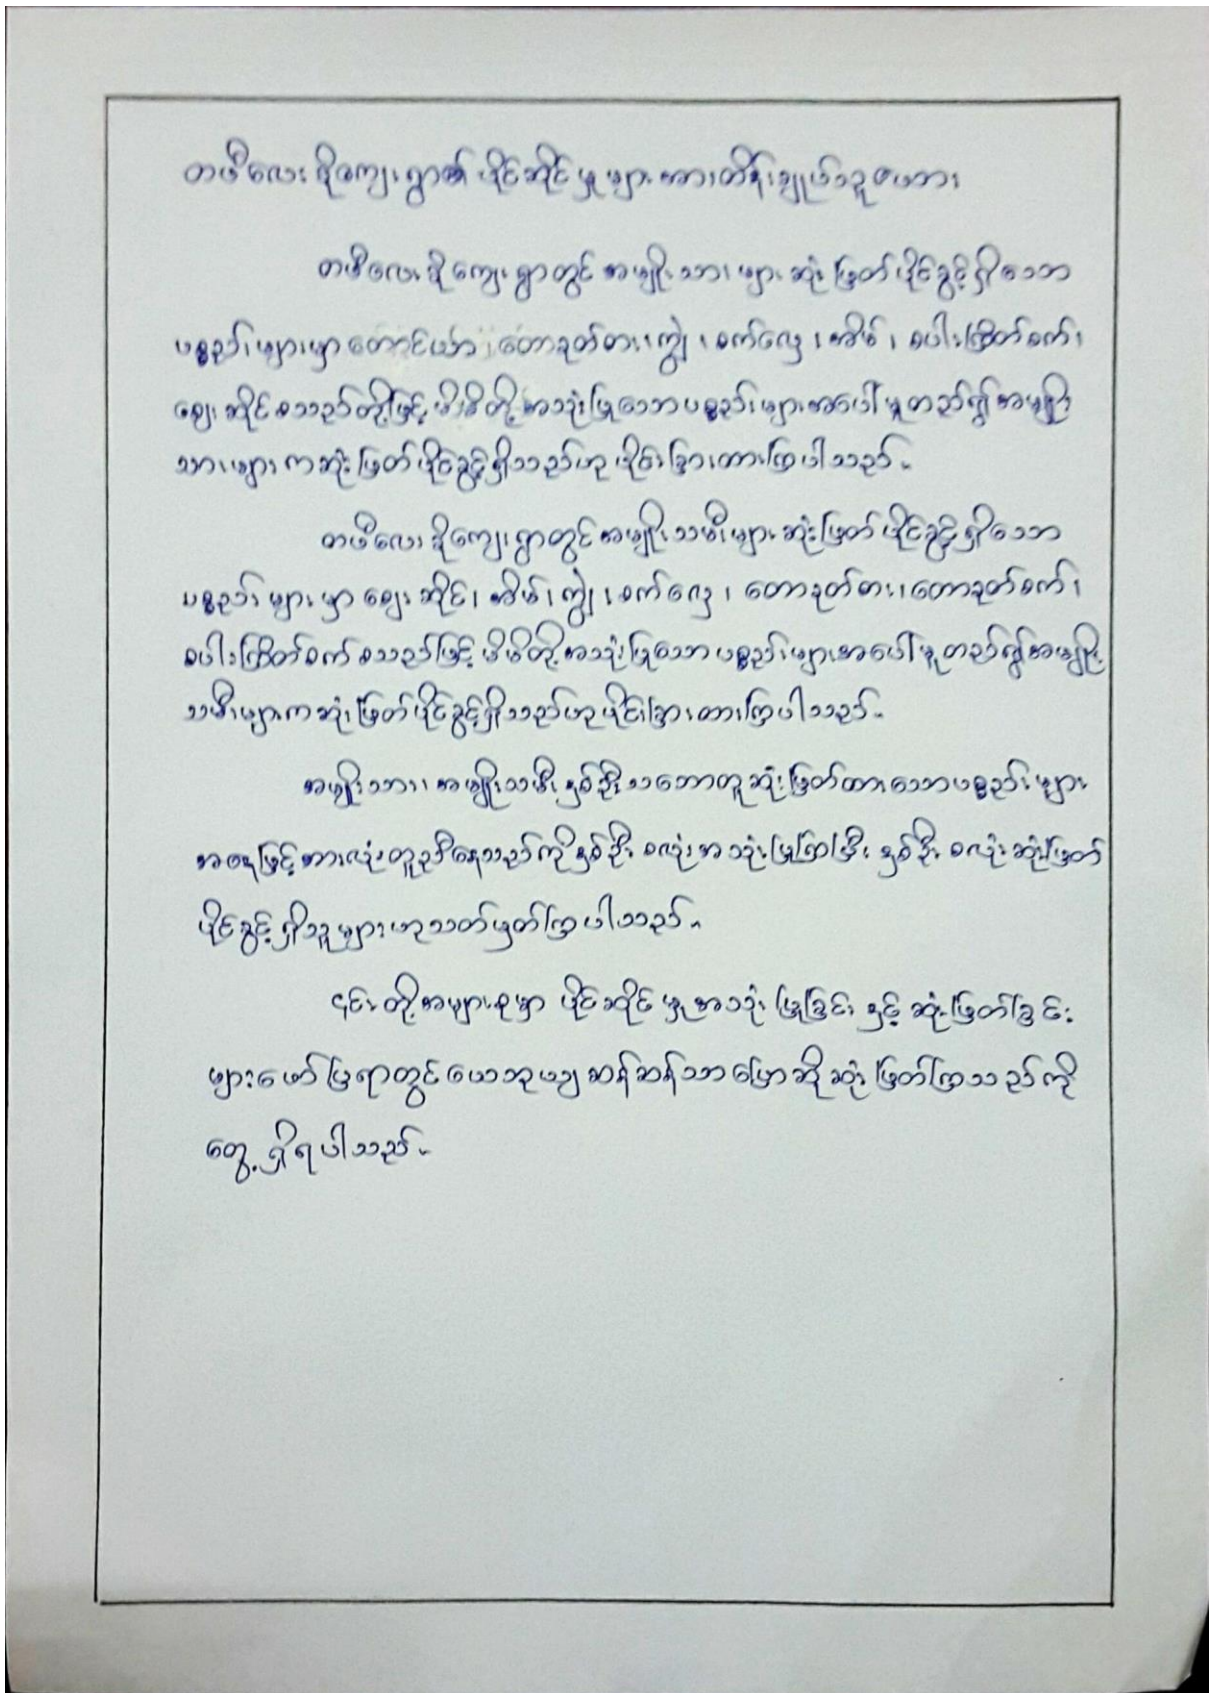 တဖီလေးဒိုကျေးရွာ၏ ပိုင်ဆိုင်မှုများအားထိန်းချုပ်သူဇယား
တဖီလေးဒိုကျေးရွာတွင် အမျိုးသားများ ဆုံးဖြတ်ပိုင်ခွင့်ရှိသော
ပစ္စည်းများမှာ တောင်ယာ ၊ တောခုတ်ဓား ၊ ကျွဲ ၊ စက်လှေ ၊ အိမ် ၊ စပါးကြိတ်စက် ၊
ဈေးဆိုင် စသည်တို့ဖြင့် မိမိတို့ အသုံးပြုသောပစ္စည်းများအပေါ်မူတည်၍ အမျိုး
သားများကဆုံးဖြတ်ပိုင်ခွင့်ရှိသည်ဟု ပိုင်းခြားထားကြပါသည်။
တဖီလေးဒိုကျေးရွာတွင် အမျိုးသမီးများ ဆုံးဖြတ်ပိုင်ခွင့်ရှိသော
ပစ္စည်းများမှာ ဈေးဆိုင် ၊ အိမ် ၊ ကျွဲ ၊ စက်လှေ ၊ တောခုတ်ဓား ၊ တောခုတ်စက် ၊
စပါးကြိတ်စက် စသည်ဖြင့် မိမိတို့အသုံးပြုသောပစ္စည်းများအပေါ်မူတည်၍အမျိုး
သမီးများကဆုံးဖြတ်ပိုင်ခွင့်ရှိသည်ဟုပိုင်းခြားထားကြပါသည်။
အမျိုးသား ၊ အမျိုးသမီး နှစ်ဦးသဘောတူဆုံးဖြတ်ထားသောပစ္စည်းများ
အနေဖြင့်အားလုံးတူညီနေသည်ကိုနှစ်ဦးစလုံးအသုံးပြုကြပြီး နှစ်ဦးစလုံးဆုံးဖြတ်
ပိုင်ခွင့်ရှိသူများဟုသတ်မှတ်ကြပါသည်။
၎င်းတို့အများစုမှာ ပိုင်ဆိုင်မှုအသုံးပြုခြင်း နှင့် ဆုံးဖြတ်ခြင်း
များဖော်ပြရာတွင်ယေဘုယျဆန်ဆန်သာပြောဆိုဆုံးဖြတ်ကြသည်ကို
တွေ့ရှိရပါသည်။